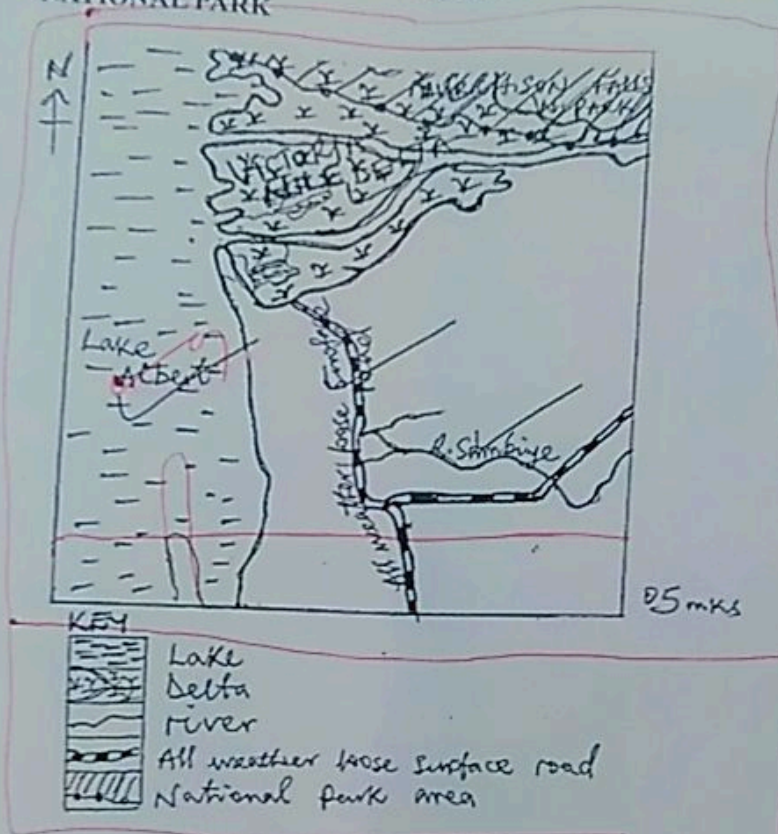 NATIONAL PARK
N
MURCHISON FALLS
N. PARK
VICTORIA
NILE DELTA
Lake
Albert
All weather loose Surface
road
R. Sambiye
05 mks
KEY
Lake
Delta
river
All weather loose surface road
National park area